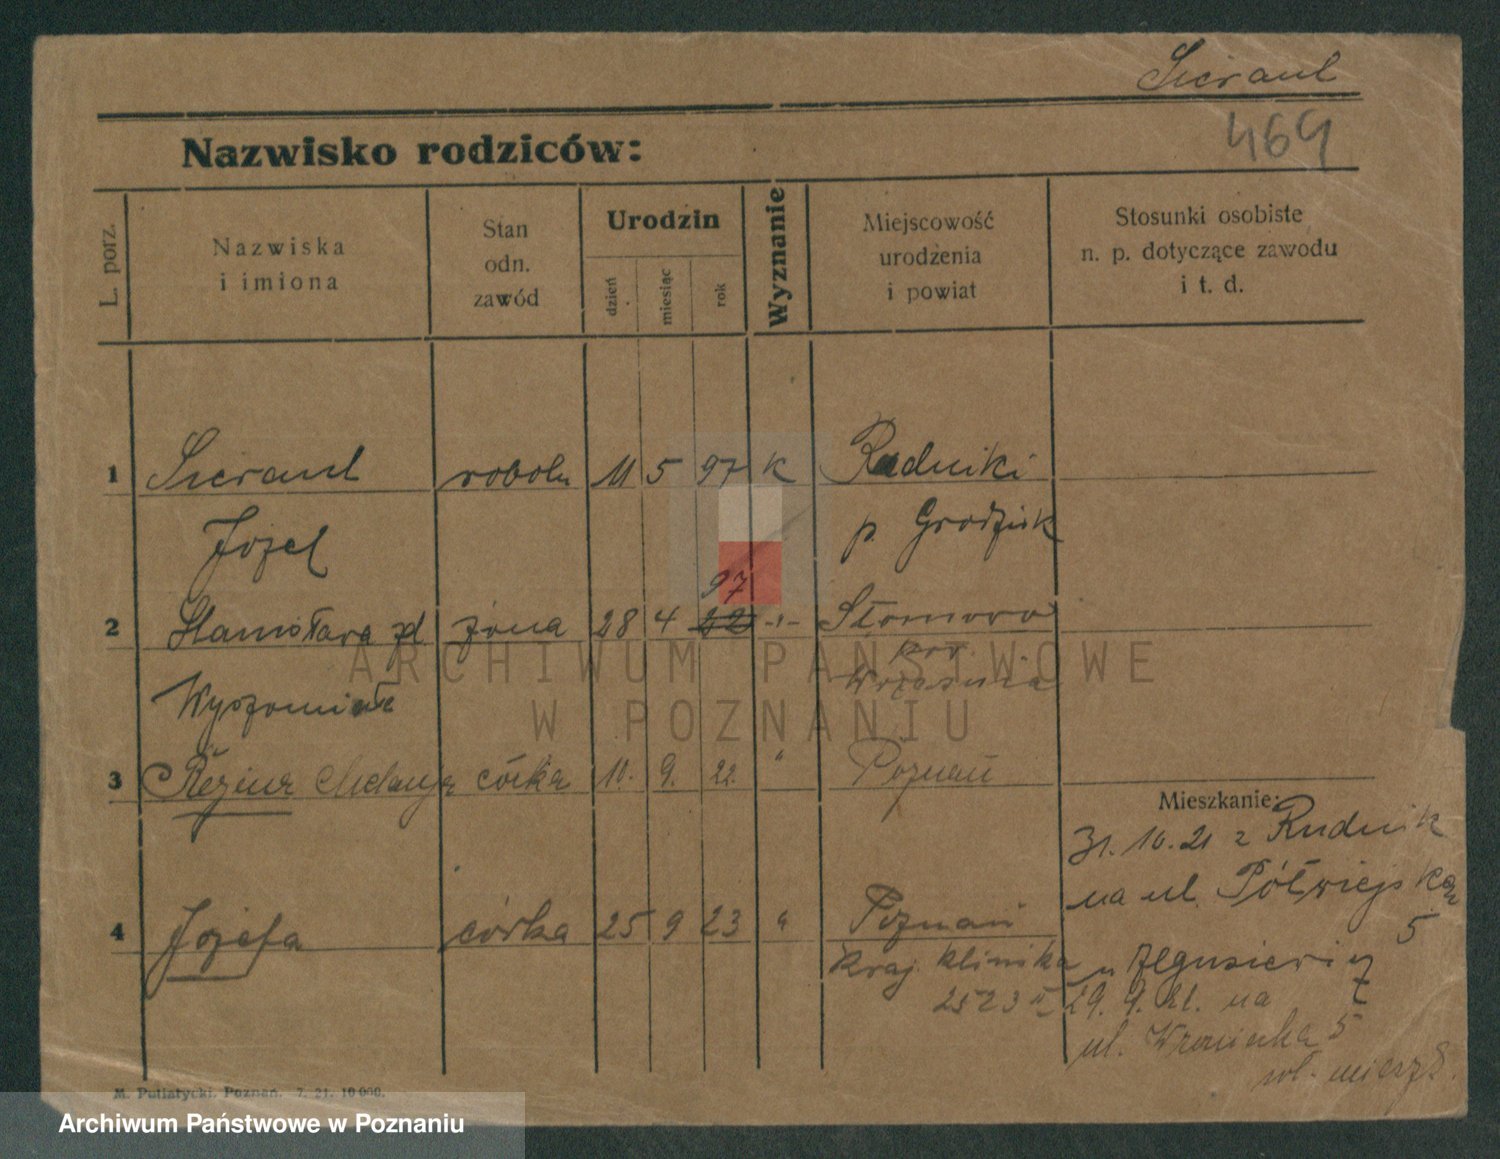 Sieraut
464
Nazwisko rodziców:
L. porz.
Nazwiska
i imiona
Stan
odn.
zawód
Urodzin
dzień
miesiąc
rok
Wyznanie
Miejscowość
urodzenia
i powiat
Stosunki osobiste
n. p. dotyczące zawodu
i t. d.
1 robotn 11 5 97 k Rudniki
Józef p. Grodzisk
97
2 Stanisława zd żona 28 4 22 -"- Słomowo
pow.
Września
3 Regina Melanja córka 10. 9. 22. " Poznań
Mieszkanie:
31.10.21 z Rudnik
na ul. Półwiejska
5
4 Józefa córka 25 9 23 " Poznań
kraj. klinika
u
29. 9. 21. na
ul. Wroniecka 5
wł. mieszk.
M. Putiatycki. Poznań. 7. 21. 10 000.
ARCHIWUM PAŃSTWOWE
W POZNANIU
Archiwum Państwowe w Poznaniu